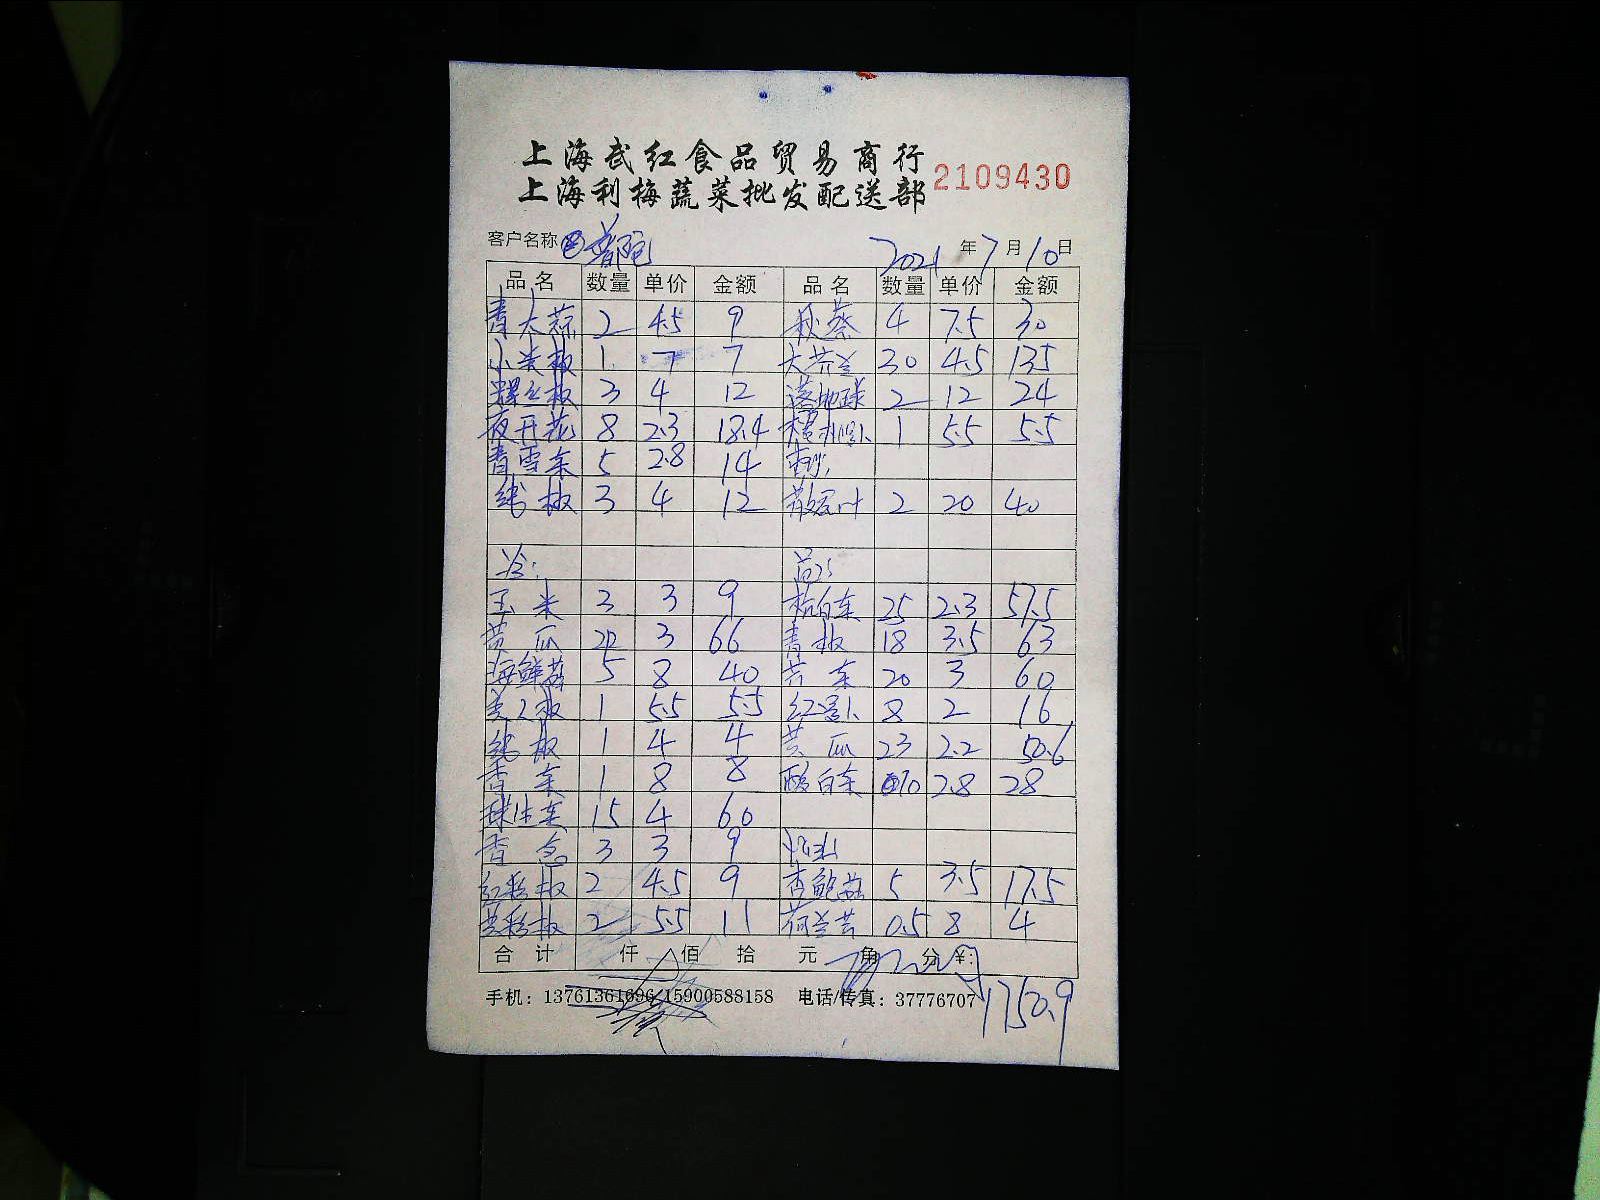 上海武红食品贸易商行
上海利梅蔬菜批发配送部
2109430
客户名称 2021年7月10日
品名 数量 单价 金额 品名 数量 单价 金额
青大蒜 2 4.5 9 秋葵 4 7.5 30
小米椒 1 7 7 大芥兰 30 4.5 135
螺丝椒 3 4 12 2 12 24
夜开花 8 2.3 18.4 1 5.5 5.5
青雪菜 5 2.8 14
线椒 3 4 12 2 20 40
冷:
玉米 3 3 9 杭白菜 25 2.3 57.5
黄瓜 22 3 66 青椒 18 3.5 63
海鲜菇 5 8 40 芹菜 20 3 60
美人椒 1 5.5 5.5 红萝卜 8 2 16
线椒 1 4 4 黄瓜 23 2.2 50.6
香菜 1 8 8 酸白菜 10 2.8 28
球生菜 15 4 60
香葱 3 3 9
红彩椒 2 4.5 9 杏鲍菇 5 3.5 17.5
黄彩椒 2 5.5 11 荷兰芹 0.5 8 4
合计 仟 佰 拾 元 角 分 ¥:
1750.9
手机: 13761361696 15900588158 电话/传真: 37776707